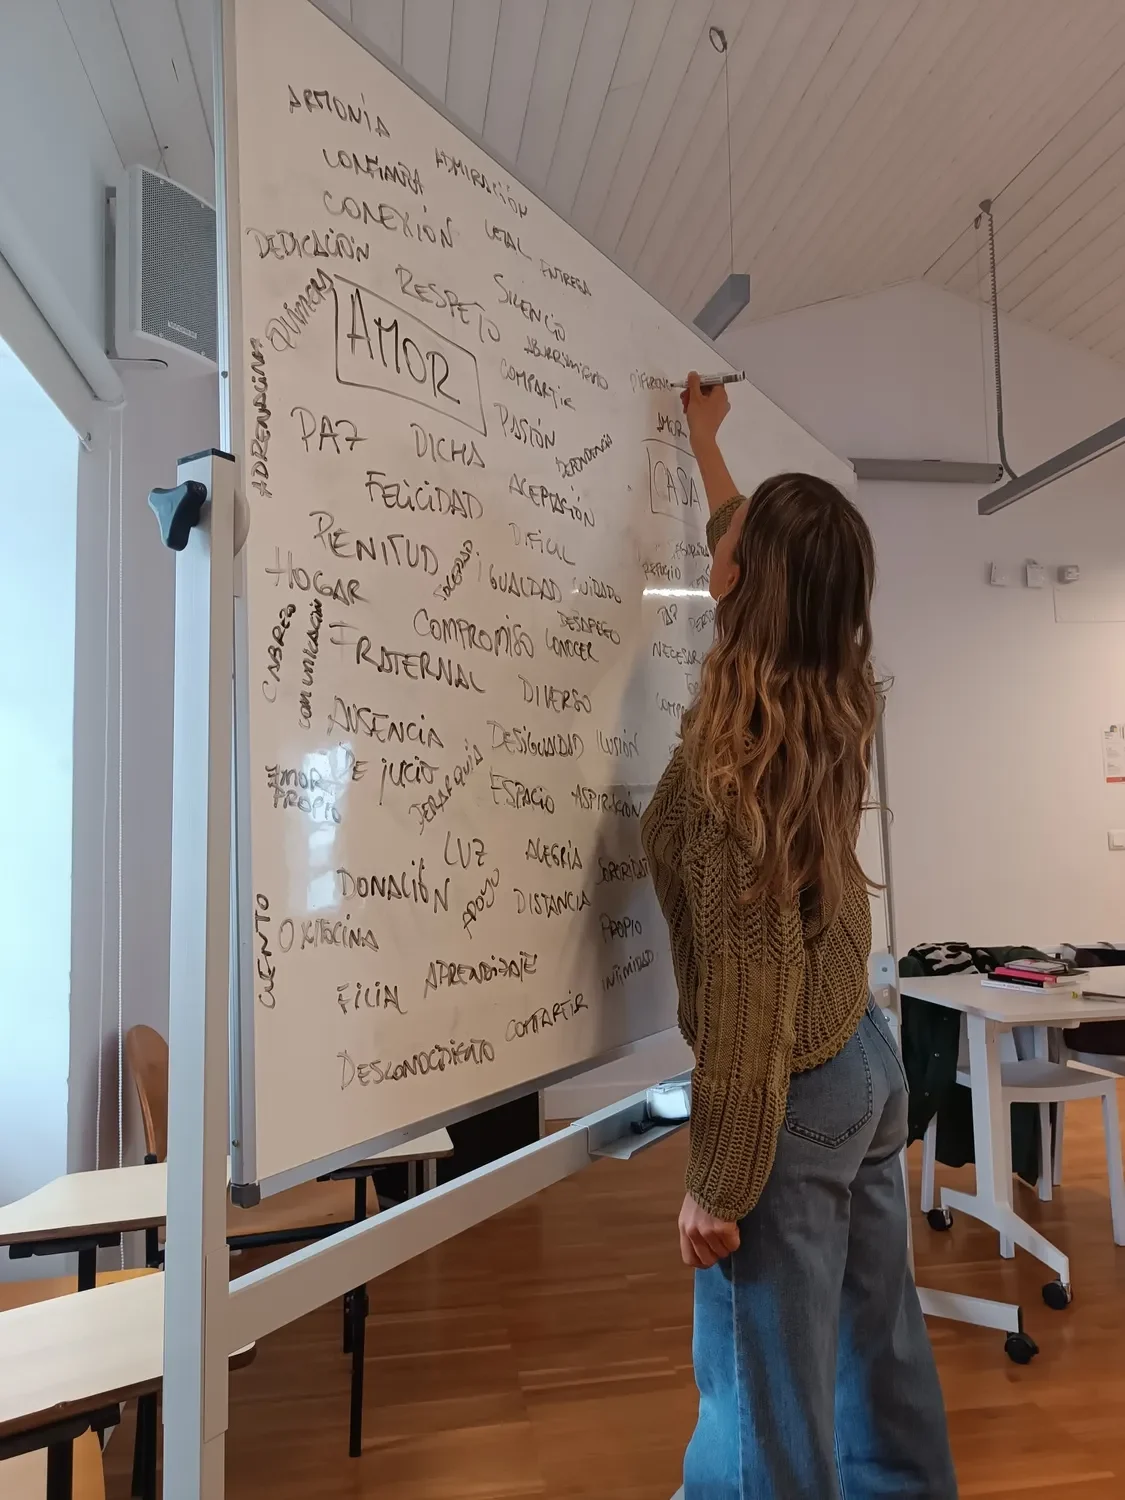 ARMONÍA
CONFIANZA
ADMIRACIÓN
CONEXIÓN
LETAL
ENTREGA
DEDICACIÓN
RESPETO
SILENCIO
QUÍMICA
ABURRIMIENTO
AMOR
COMPARTIR
ADRENALINA
PAZ
DICHA
PASIÓN
DEPENDENCIA
FELICIDAD
ACEPTACIÓN
PLENITUD
DIFICIL
HOGAR
IGUALDAD
CUIDADO
COMPROMISO
DESAPEGO
CONOCER
CABREO
COMUNICACIÓN
FRATERNAL
DIVERSO
AUSENCIA
DESIGUALDAD
ILUSIÓN
DE JUICIO
JERARQUÍA
ESPACIO
ASPIRACIÓN
AMOR
PROPIO
LUZ
ALEGRÍA
DONACIÓN
APOYO
DISTANCIA
CUENTO
OXITOCINA
PROPIO
FILIA
APRENDIZAJE
INTIMIDAD
DESCONOCIMIENTO
COMPARTIR
AMOR
CASA
REFUGIO